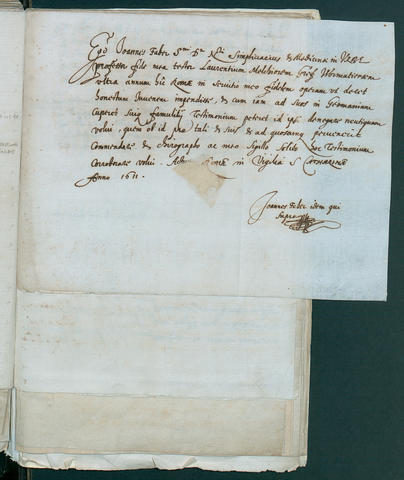 Ego Joannes Faber Smi Dn Nri Simpliciarius & Medicinæ in Urbe
professor fide mea testor Laurentium Melchiorem Wormatiensem
ultra annum hic Romæ in servitio meo fidelem operam ut decet
honestum Juvenem impendisse, & cum iam ad suos in Germaniam
cuperet suiq famulitij Testimonium peteret id ipsi denegare neutiquam
volui. quem ob id pro tali & suis & ad quoscunq pervenerit
Commendatum & chirographo ac meo Sigillo solito hoc Testimonium
Corroborare volui. Romæ in Vigilia S. Catharinæ
Anno 1611.
Joannes Faber idem qui
supra